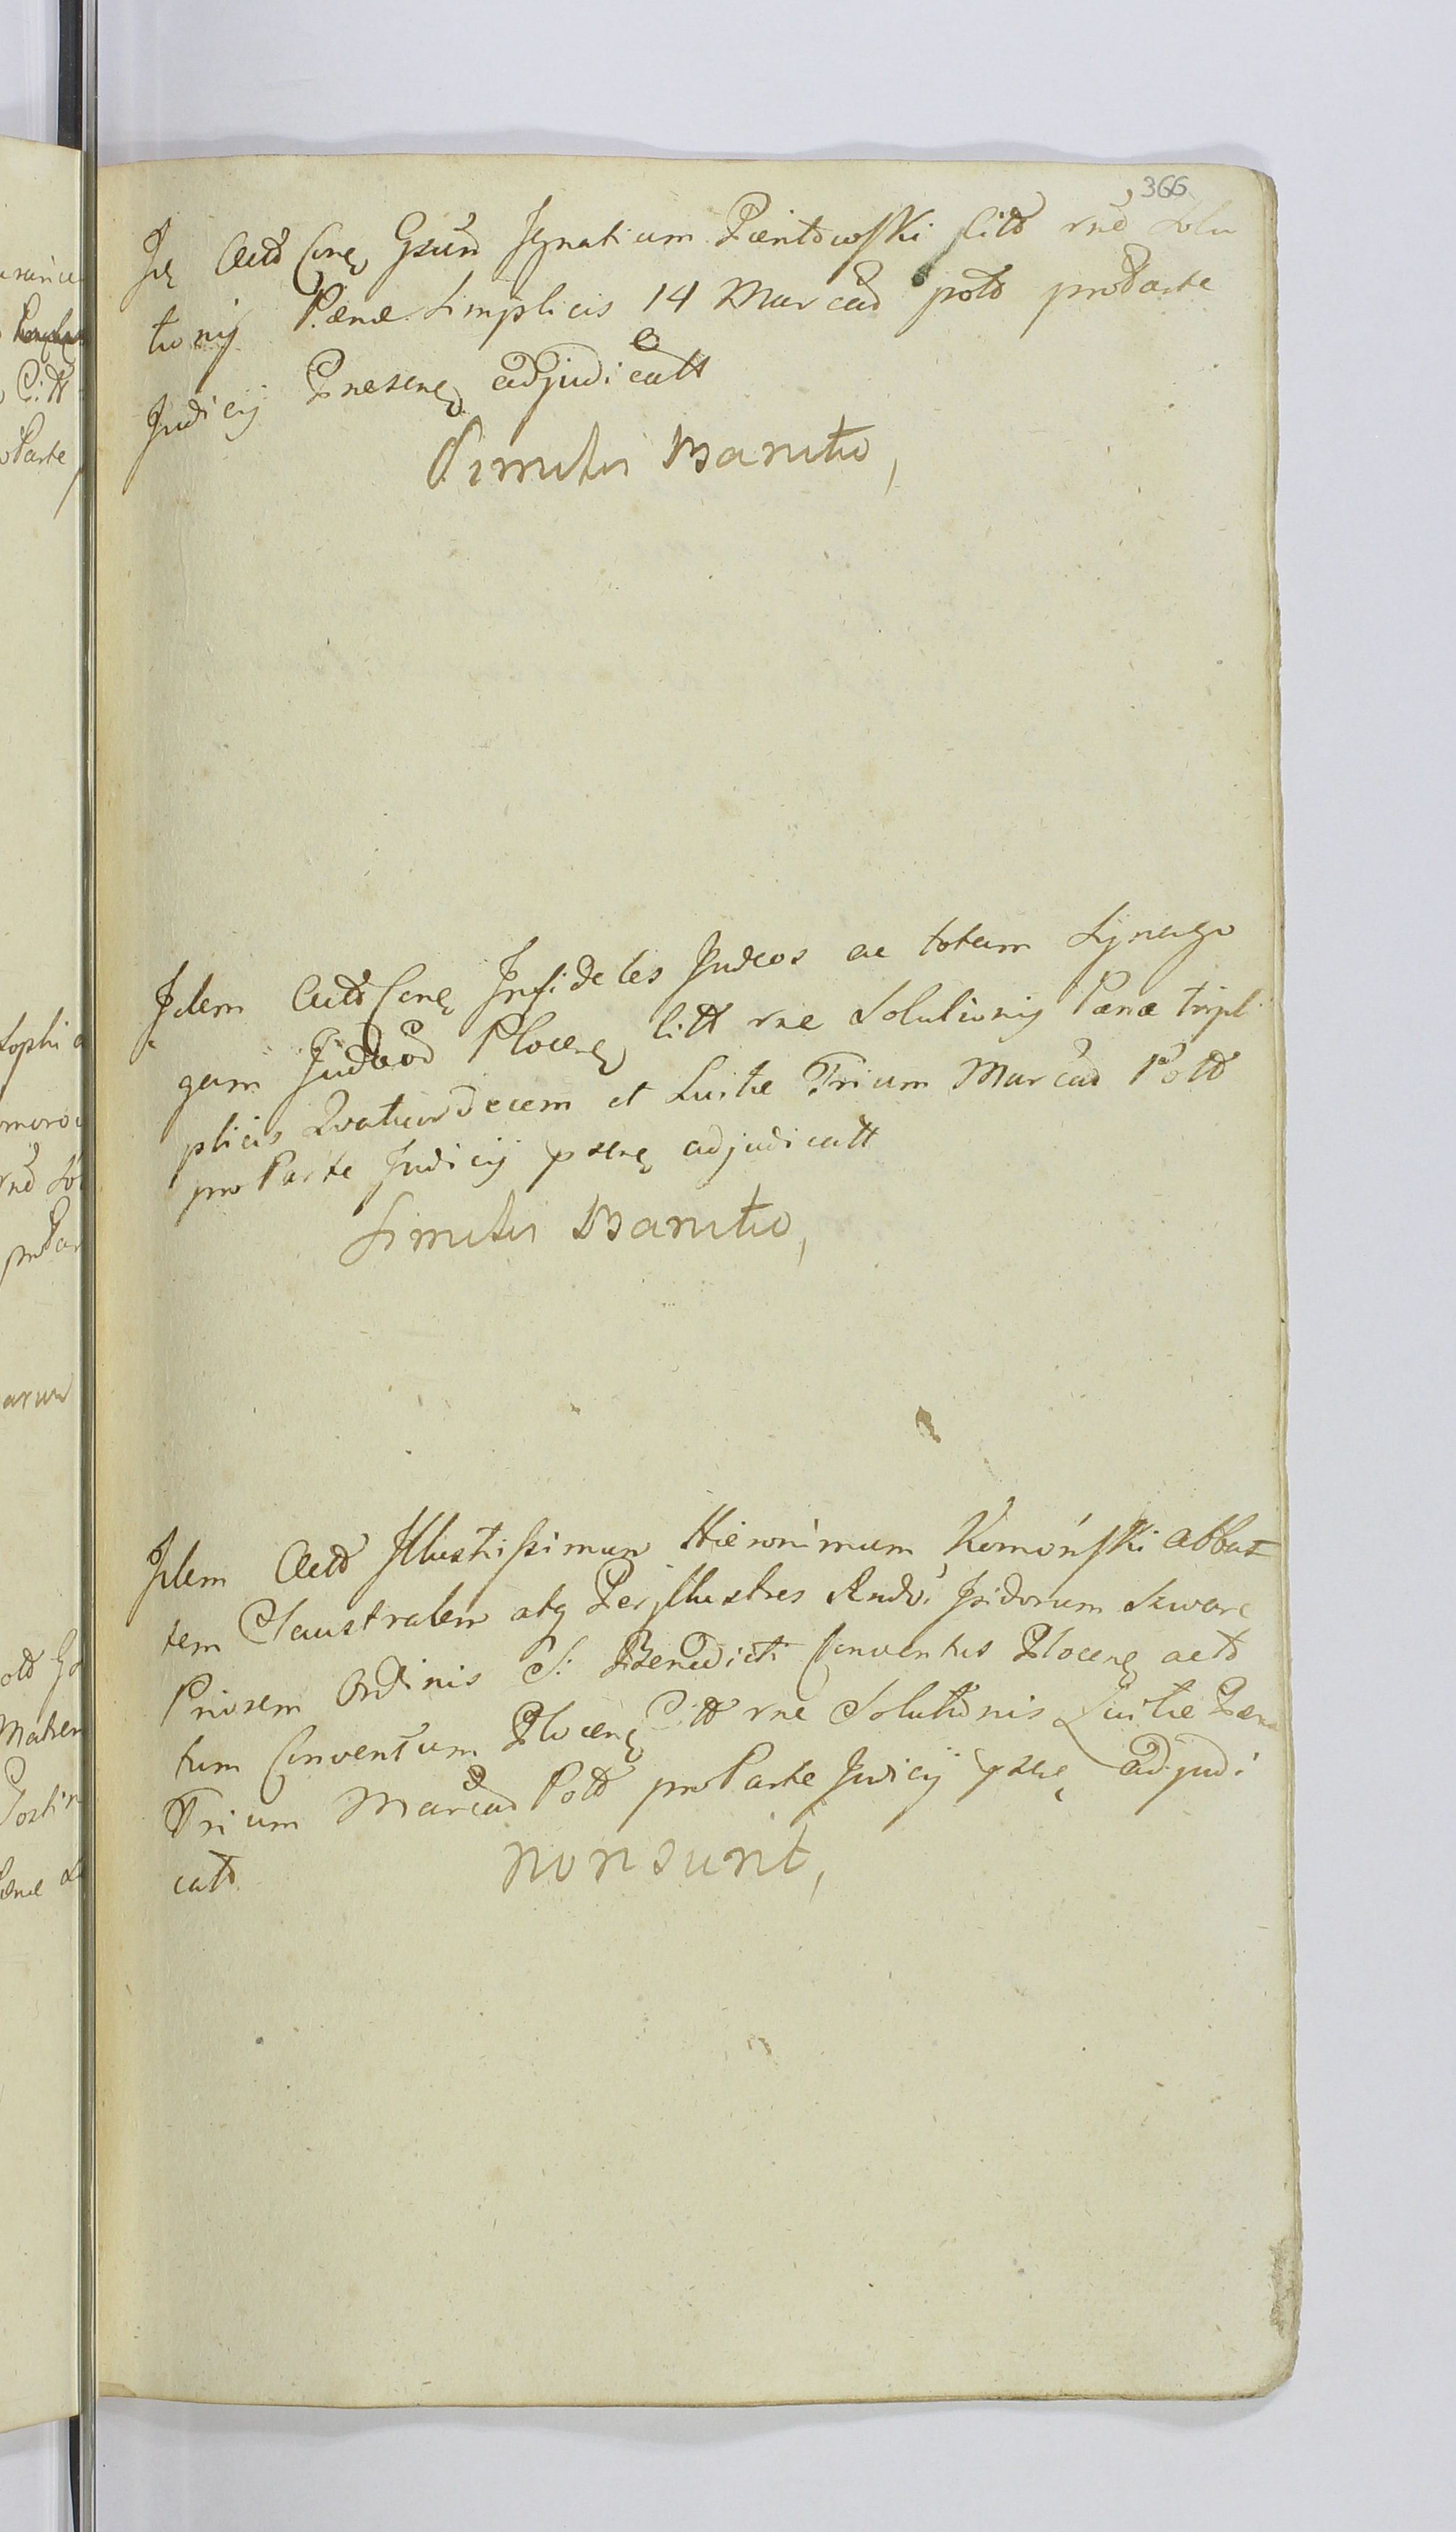 366
Id Actd Conq Gsūm Ignatium Pientowski Citd rne Solu
tionij Pænæ Simplicis 14 Marcad pold pro Parte
Judicij Presenq adjudicatt
Similis Banitio,
Idem Actd Conq Infideles Judeos ac totam Synago
gam Judæod Plocenq Citt rne Solutionij Pænæ tripli
plicis Quatuordecem et Luitæ Trium Marcad Pold
pro Parte Judicij psenq adjudicatt
Similis Banitio,
Idem Actd Illustrissimum Hieronimum Komónski abbat
tem Claustralem atq Perjllustres Rndoi Isidorum Szwarc
Priorem Ordinis S: Benedicti Conventus Plocenq actd
tum Conventum Plocenq Citt rne Solutionis Luitæ Pænæ
Trium Marcad Pold pro Parte Judicij psenq adjudi
catd
non sunt,